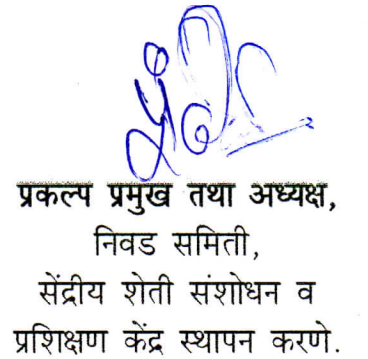 प्रकल्प प्रमुख तथा अध्यक्ष,
निवड समिती,
सेंद्रीय शेती संशोधन व
प्रशिक्षण केंद्र स्थापन करणे.